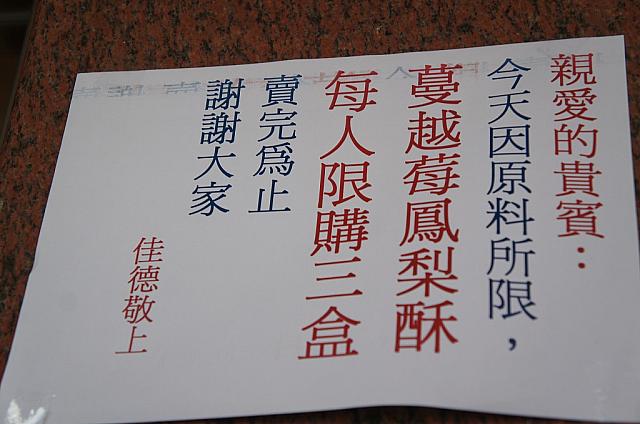 親愛的貴賓：
今天因原料所限，
蔓越莓鳳梨酥
每人限購三盒
賣完為止
謝謝大家
佳德敬上